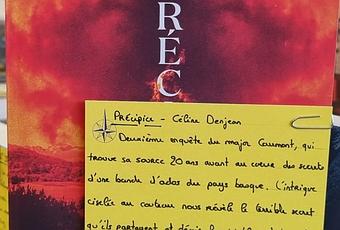 R
É
C
Précipice - Céline Denjean
Deuxième enquête du major Caumont, qui
trouve sa source 20 ans avant au cœur des secrets
d'une bande d'ados du pays basque. L'intrigue
ciselée au couteau nous révèle le terrible secret
qu'ils partagent et